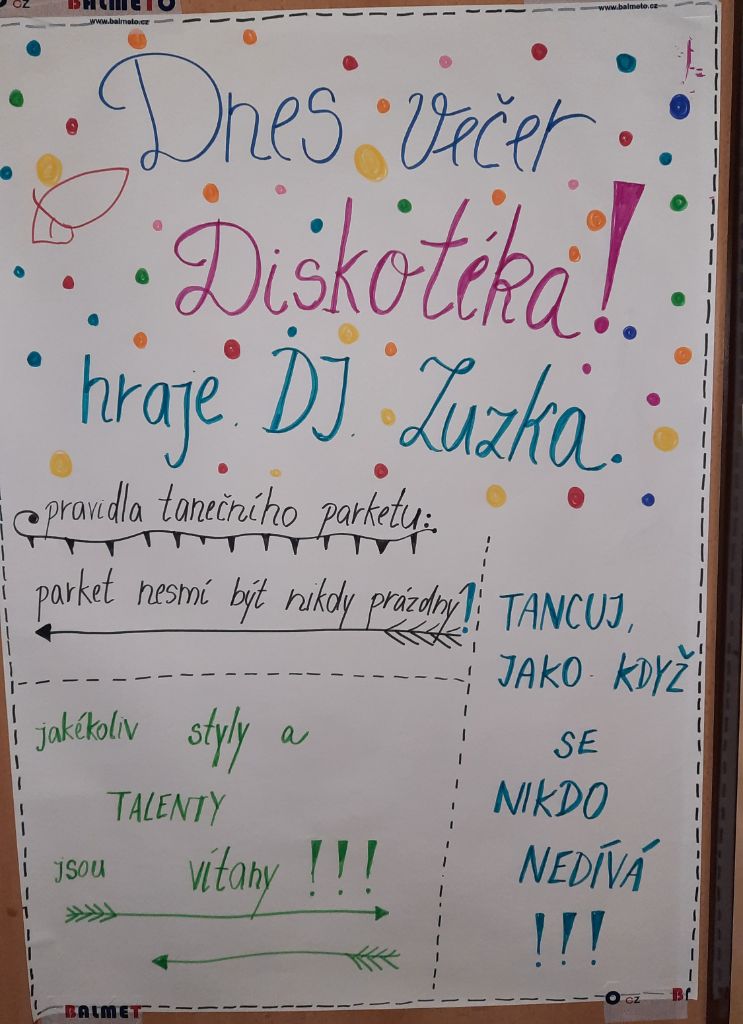 BALMETO
www.balmeto.cz
www.balmeto.cz
Dnes večer
Diskotéka!
hraje DJ Zuzka.
pravidla tanečního parketu:
parket nesmí být nikdy prázdny!
jakékoliv styly a
TALENTY
jsou vítany !!!
TANCUJ,
JAKO KDYŽ
SE
NIKDO
NEDÍVÁ
!!!
BALMET
cz